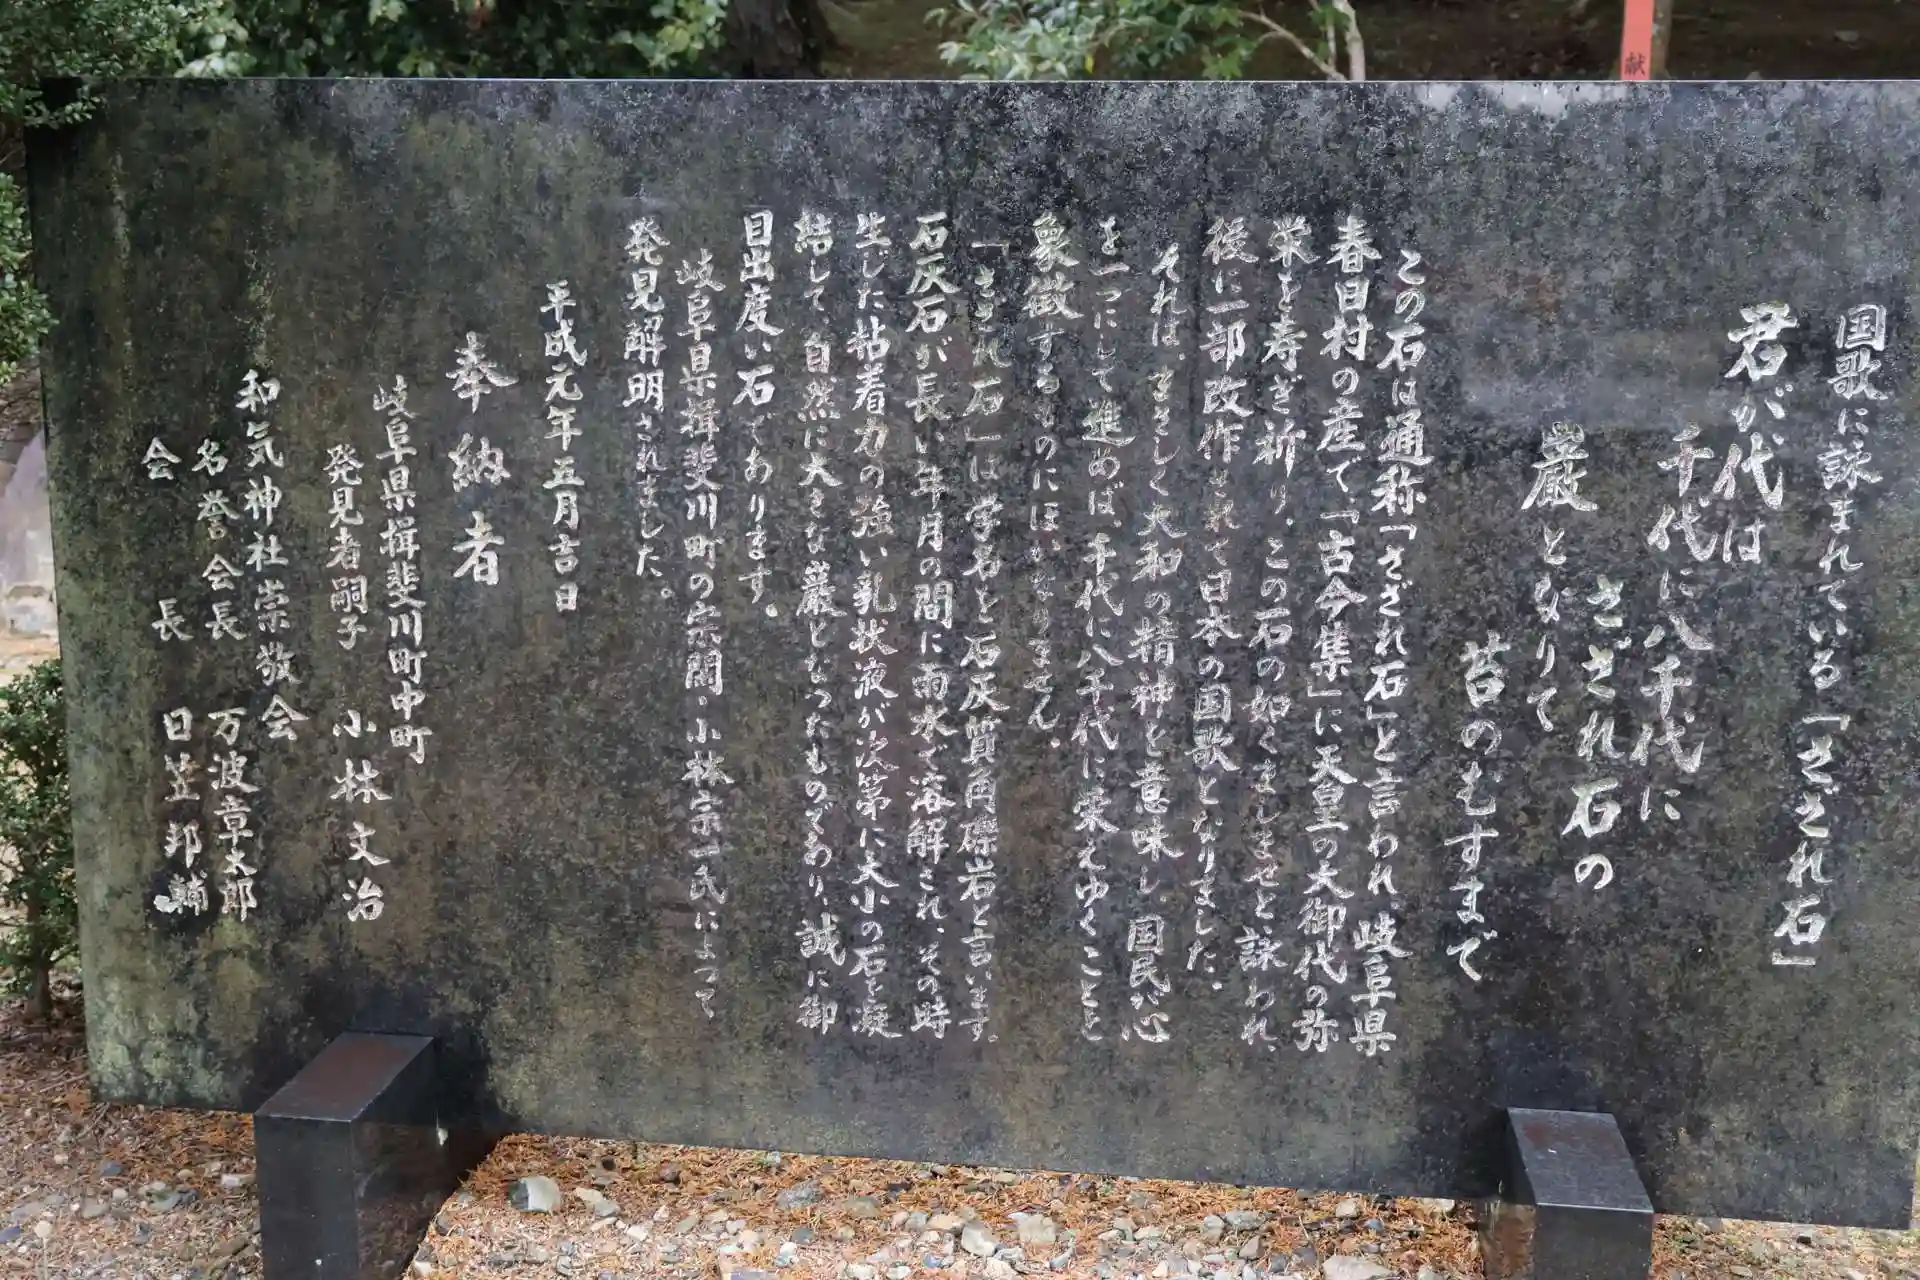 国歌に詠まれている「さざれ石」
君が代は
千代に八千代に
さざれ石の
巌となりて
苔のむすまで
この石は通称「さざれ石」と言われ、岐阜県
春日村の産で、「古今集」に天皇の大御代の弥
栄を寿ぎ祈り、この石の如くましませと、詠われ、
後に一部改作されて日本の国歌となりました。
それは、まさしく大和の精神と意味し、国民が心
を一つにして進めば、千代に八千代に栄えゆくことと
象徴するものにほかなりません。
「さざれ石」は学名を石灰質角礫岩と言います。
石灰石が長い年月の間に雨水で溶解され、その時
生じた粘着力の強い乳状液が次第に大小の石を凝
結して、自然に大きな巌となったものであり、誠に御
目出度い石であります。
岐阜県揖斐川町の宗閤・小林宗一氏によって
発見解明されました。
平成元年五月吉日
奉納者
岐阜県揖斐川町中町
発見者嗣子 小林文治
和気神社崇敬会
名誉会長 万波章太郎
会長 日笠邦輔
献